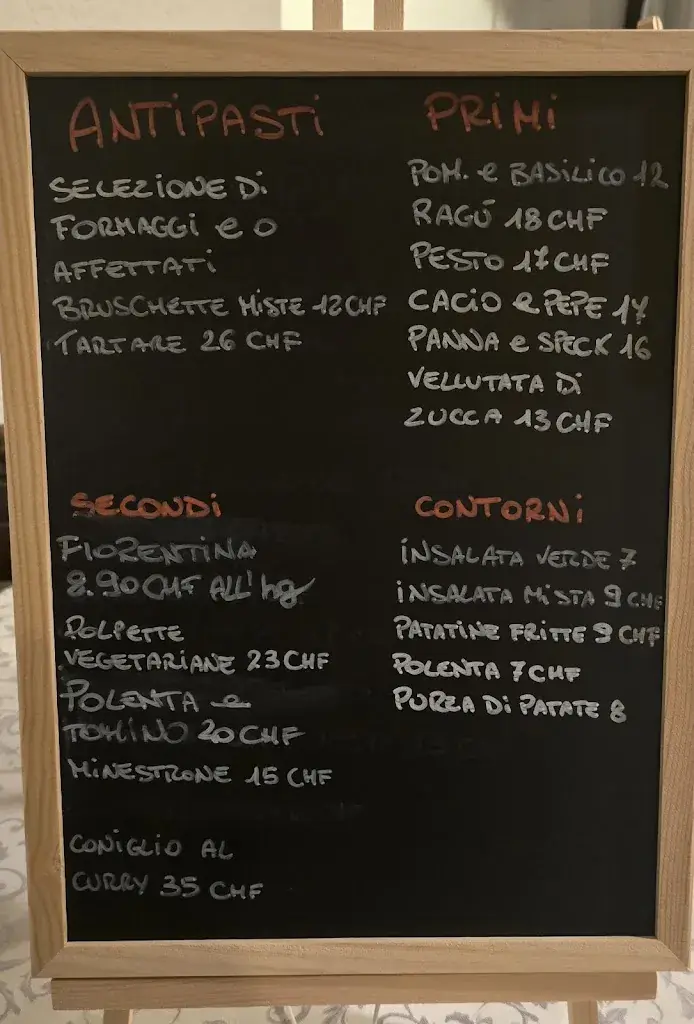 ANTIPASTI
SELEZIONE DI
FORMAGGI e O
AFFETTATI
BRUSCHETTE MISTE 12 CHF
TARTARE 26 CHF
PRIMI
POM. e BASILICO 12
RAGÚ 18 CHF
PESTO 17 CHF
CACIO e PEPE 17
PANNA e SPECK 16
VELLUTATA DI
ZUCCA 13 CHF
SECONDI
FIORENTINA
8.90 CHF ALL' hg
POLPETTE
VEGETARIANE 23 CHF
POLENTA e
TOMINO 20 CHF
MINESTRONE 15 CHF
CONIGLIO AL
CURRY 35 CHF
CONTORNI
INSALATA VERDE 7
INSALATA MISTA 9 CHF
PATATINE FRITTE 9 CHF
POLENTA 7 CHF
PUREA DI PATATE 8